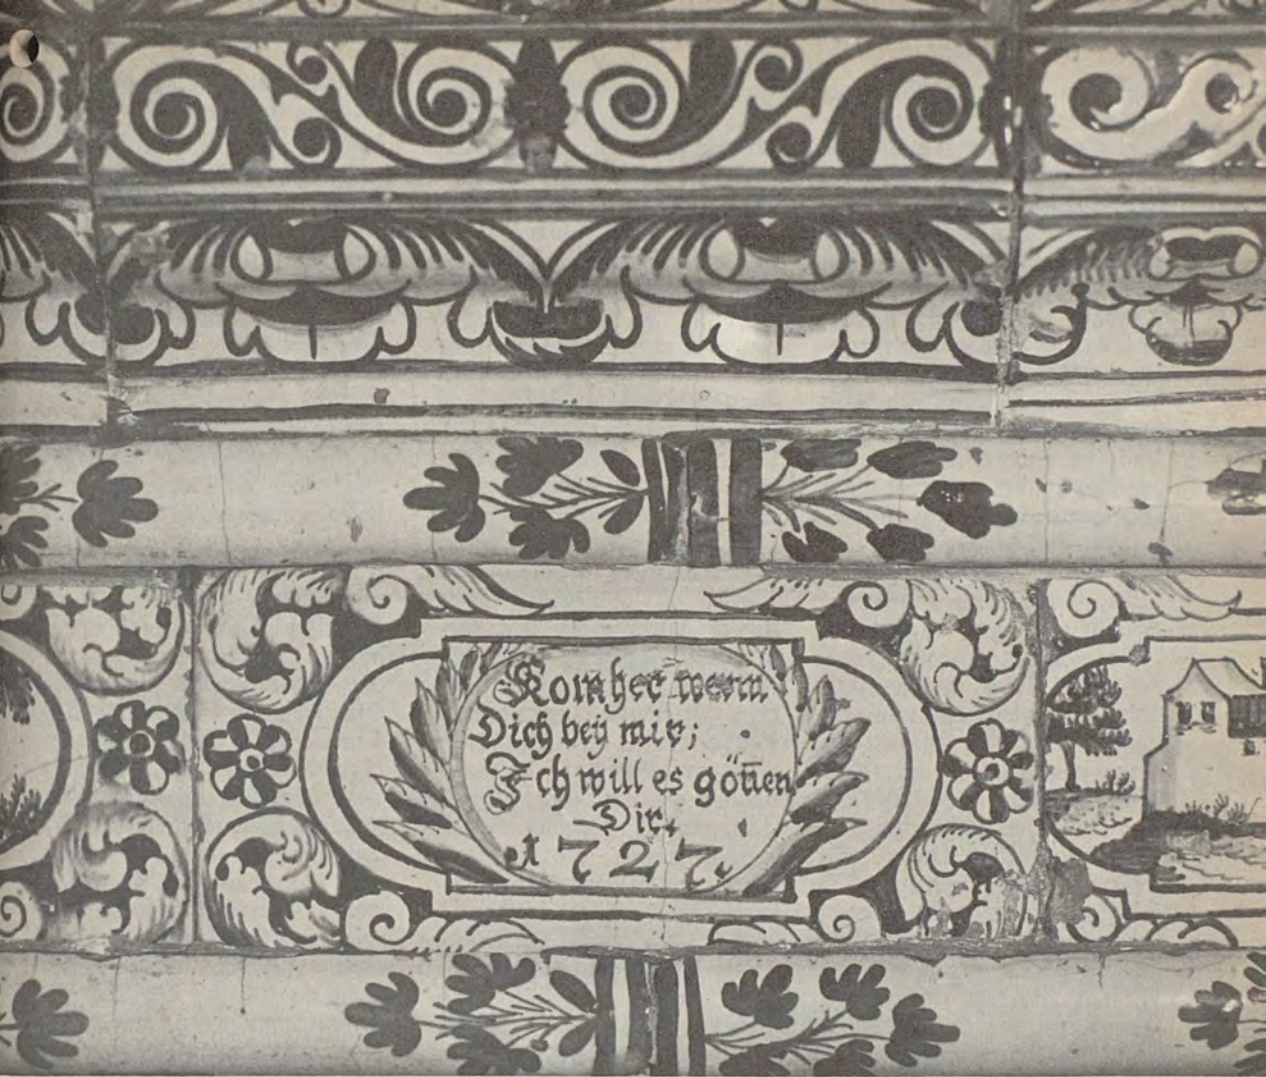 Kom her werm
Dich bey mir;
Ich will es gön̄en
Dir.
1727.